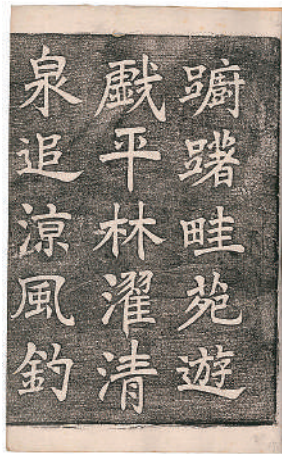 蹰躇畦苑遊
戲平林濯清
泉追涼風釣